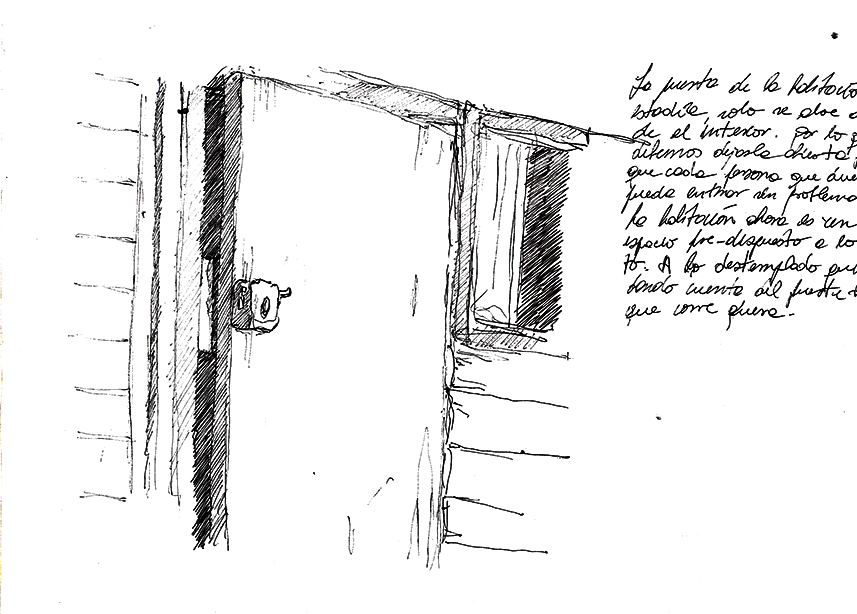 La puerta de la habitació
estadía, solo se abre d
de el interior. Por lo q
debemos dejarla abierta p
que cada persona que quie
pueda entrar sin problema
La habitación ahora es un
espacio pre-dispuesto a lo
to. A lo destemplado
dando cuenta del
que corre afuera.